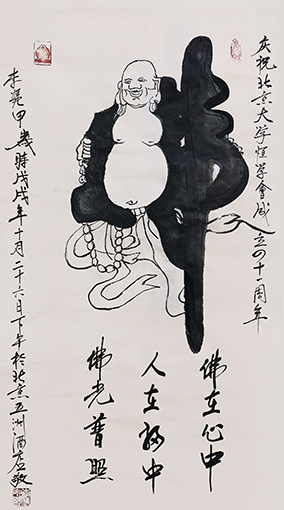 庆祝北京大学學會成立四十一周年
佛在心中
人在福中
佛光普照
甲時戊戌年十月二十六日下午於北京五洲酒店敬